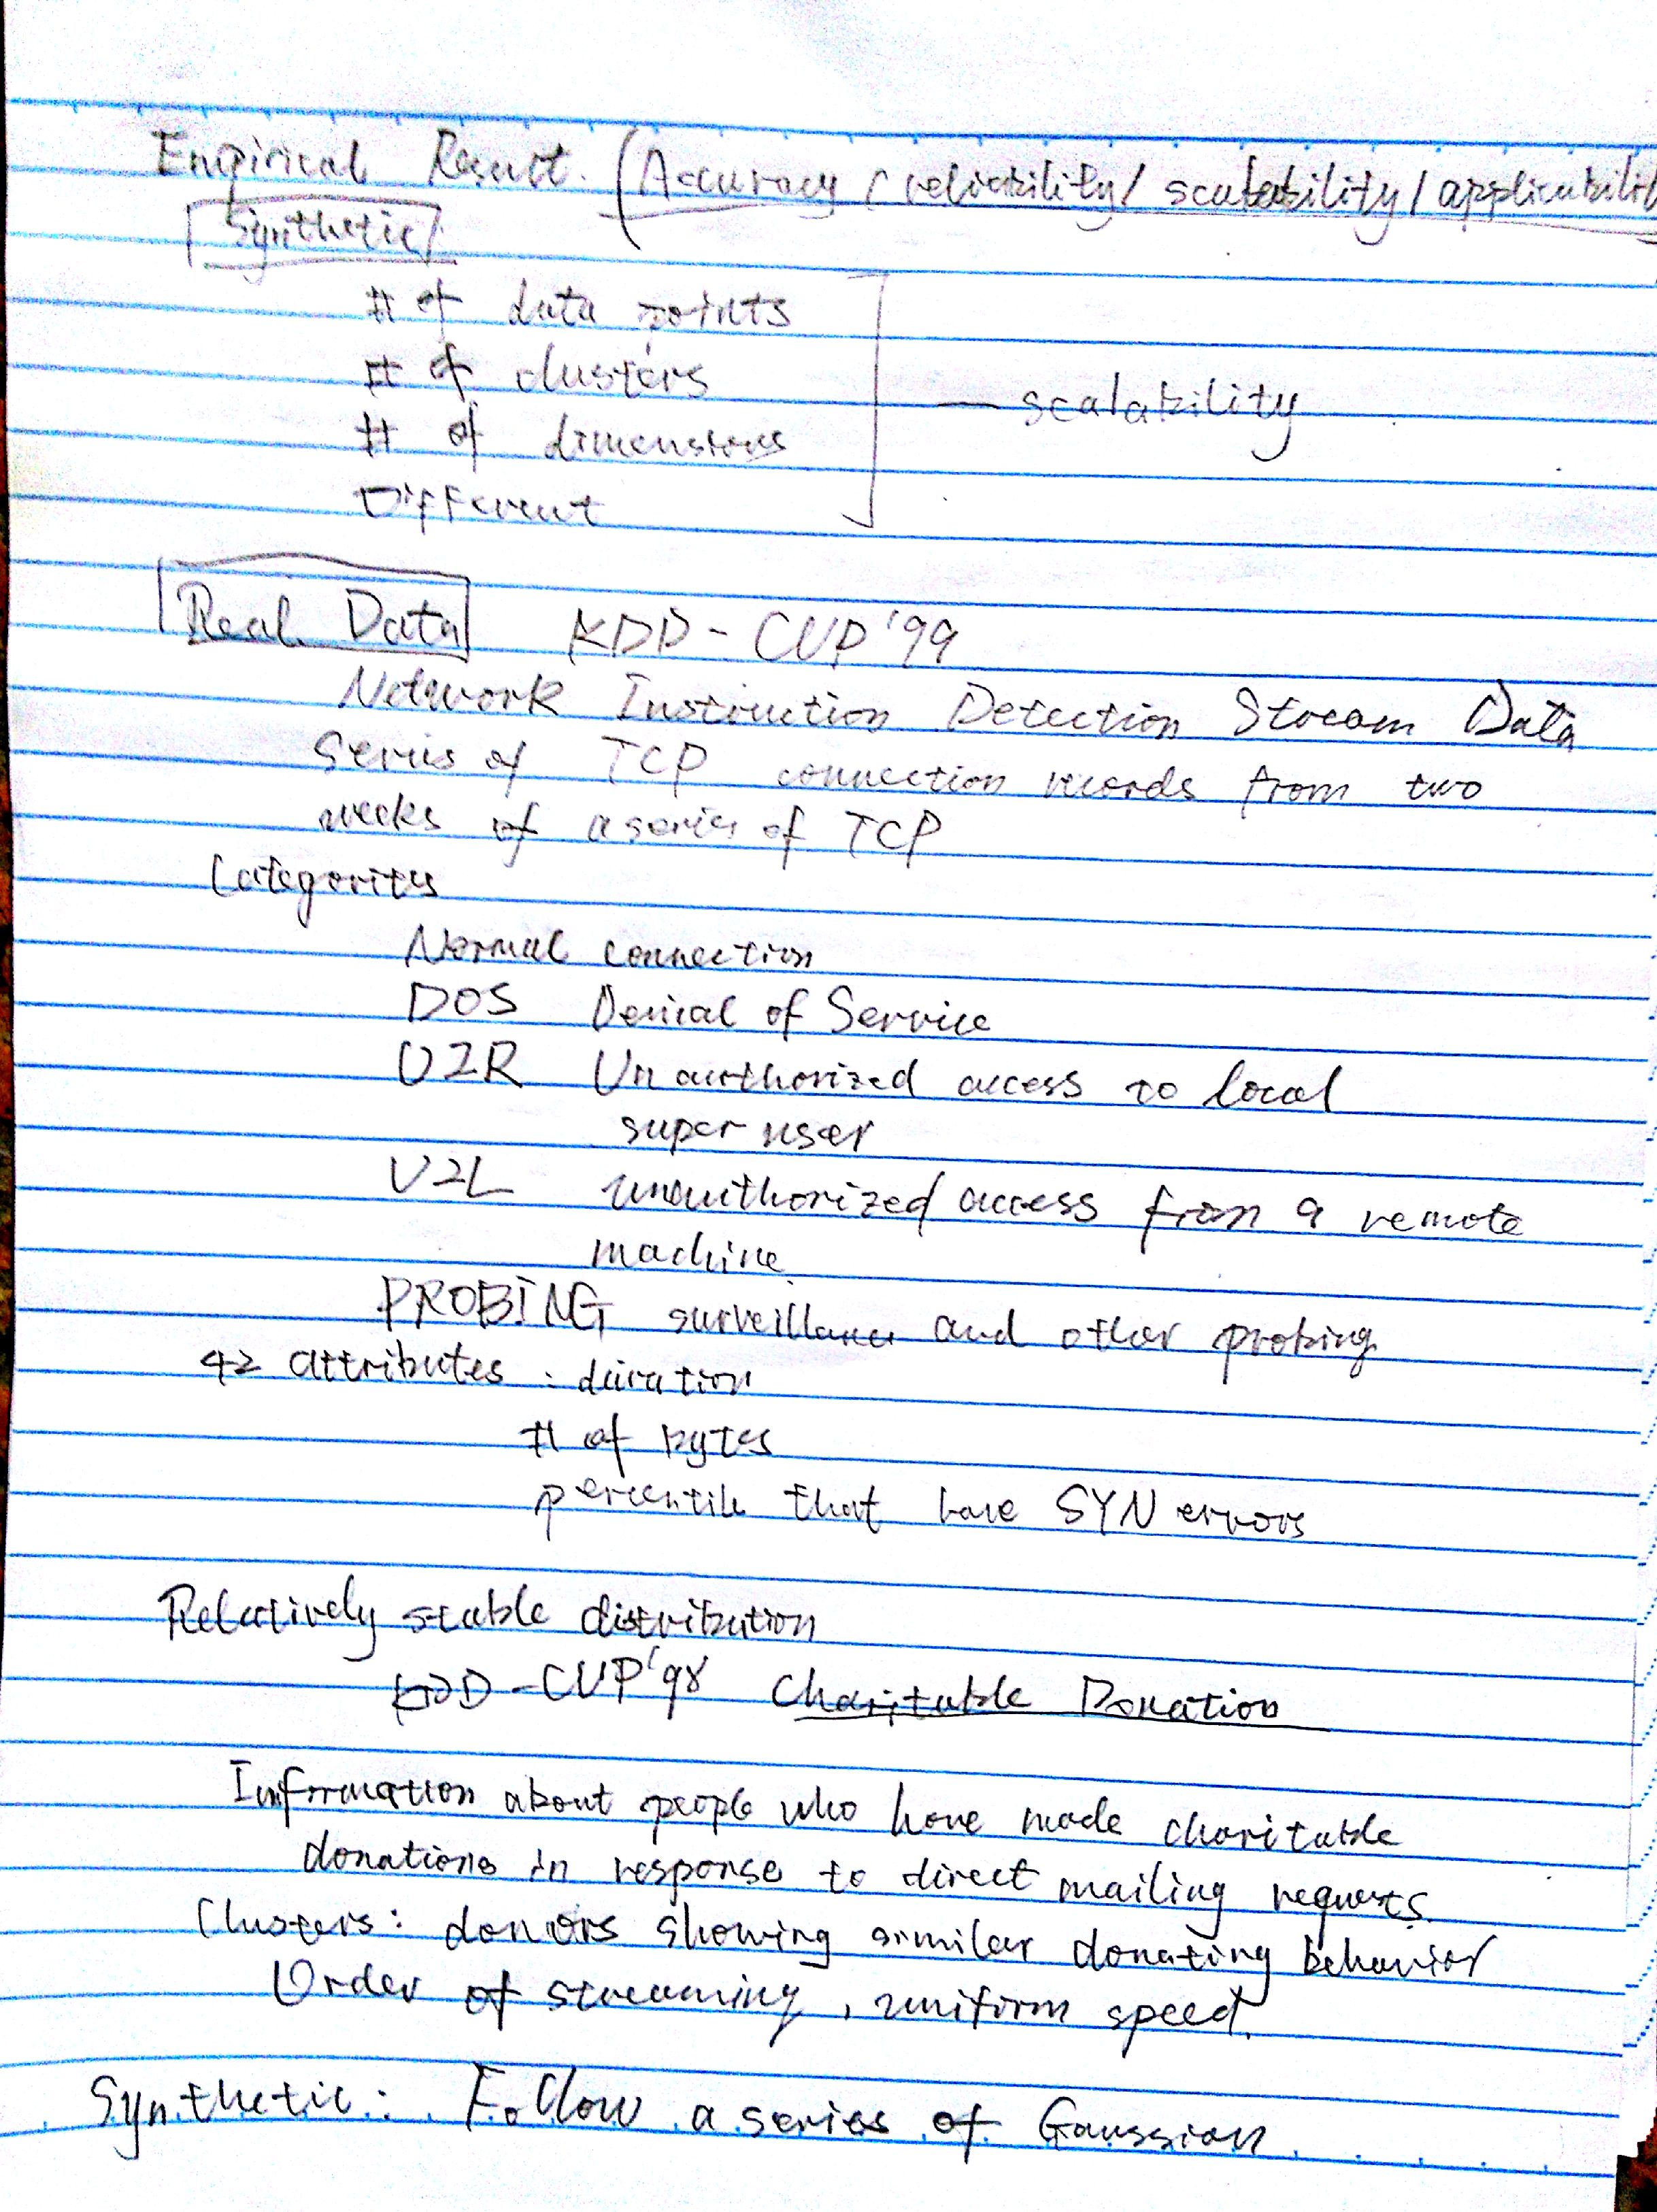 Empirical Result. (Accuracy / reliability / scalability / applicabilit
Synthetic
# of data points
# of clusters
# of dimensions
Different
— scalability
Real Data KDD-CUP'99
Network Instruction Detection Stream Data
Series of TCP connection records from two
weeks of a series of TCP
Categories
Normal connection
DOS Denial of Service
U2R Unauthorized access to local
super user
U2L unauthorized access from a remote
machine.
PROBING surveillance and other probing
42 attributes : duration
# of bytes
percentile that have SYN errors
Relatively stable distribution
KDD-CUP'98 Charitable Donation
Information about people who have made charitable
donations in response to direct mailing requests.
Clusters: donors showing similar donating behavior
Order of streaming, uniform speed.
Synthetic: Follow a series of Gaussian